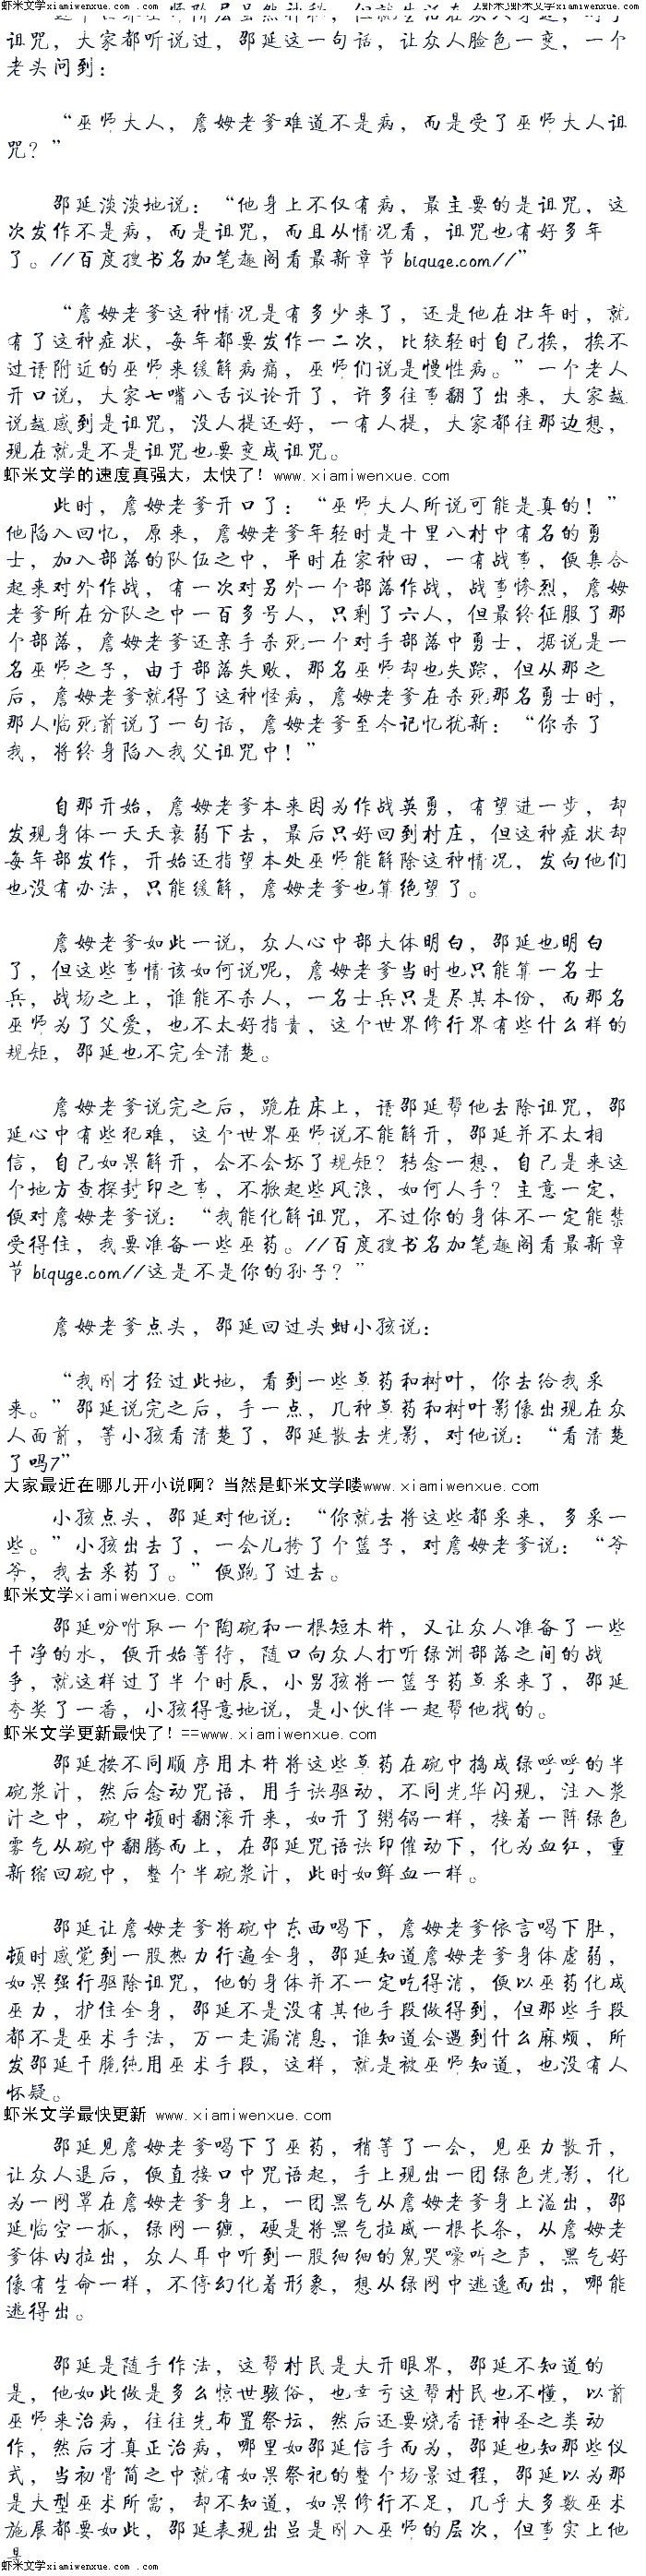 虾米文学www.xiamiwenxue.com . .com
虾米虾米文学www.xiamiwenxue.com
诅咒，大家都听说过，邵延这一句话，让众人脸色一变，一个
老头问到：
“巫师大人，詹姆老爹难道不是病，而是受了巫师大人诅
咒？”
邵延淡淡地说：“他身上不仅有病，最主要的是诅咒，这
次发作不是病，而是诅咒，而且从情况看，诅咒也有好多年
了。//百度搜书名加笔趣阁看最新章节biquge.com//”
“詹姆老爹这种情况是有多少来了，还是他在壮年时，就
有了这种症状，每年都要发作一二次，比较轻时自己挨，挨不
过请附近的巫师来缓解病痛，巫师们说是慢性病。”一个老人
开口说，大家七嘴八舌议论开了，许多往事翻了出来，大家越
说越感到是诅咒，没人提还好，一有人提，大家都往那边想，
现在就是不是诅咒也要变成诅咒。
虾米文学的速度真强大，太快了！www.xiamiwenxue.com
此时，詹姆老爹开口了：“巫师大人所说可能是真的！”
他陷入回忆，原来，詹姆老爹年轻时是十里八村中有名的勇
士，加入部落的队伍之中，平时在家种田，一有战事，便集合
起来对外作战，有一次对另外一个部落作战，战事惨烈，詹姆
老爹所在分队之中一百多号人，只剩了六人，但最终征服了那
个部落，詹姆老爹还亲手杀死一个对手部落中勇士，据说是一
名巫师之子，由于部落失败，那名巫师却也失踪，但从那之
后，詹姆老爹就得了这种怪病，詹姆老爹在杀死那名勇士时，
那人临死前说了一句话，詹姆老爹至今记忆犹新：“你杀了
我，将终身陷入我父诅咒中！”
自那开始，詹姆老爹本来因为作战英勇，有望进一步，却
发现身体一天天衰弱下去，最后只好回到村庄，但这种症状却
每年部发作，开始还指望本处巫师能解除这种情况，发向他们
也没有办法，只能缓解，詹姆老爹也算绝望了。
詹姆老爹如此一说，众人心中部大体明白，邵延也明白
了，但这些事情该如何说呢，詹姆老爹当时也只能算一名士
兵，战场之上，谁能不杀人，一名士兵只是尽其本份，而那名
巫师为了父爱，也不太好指责，这个世界修行界有些什么样的
规矩，邵延也不完全清楚。
詹姆老爹说完之后，跪在床上，请邵延帮他去除诅咒，邵
延心中有些犯难，这个世界巫师说不能解开，邵延并不太相
信，自己如果解开，会不会坏了规矩？转念一想，自己是来这
个地方查探封印之事，不掀起些风浪，如何人手？主意一定，
便对詹姆老爹说：“我能化解诅咒，不过你的身体不一定能禁
受得住，我要准备一些巫药。//百度搜书名加笔趣阁看最新章
节biquge.com//这是不是你的孙子？”
詹姆老爹点头，邵延回过头蚶小孩说：
“我刚才经过此地，看到一些草药和树叶，你去给我采
来。”邵延说完之后，手一点，几种草药和树叶影像出现在众
人面前，等小孩看清楚了，邵延散去光影，对他说：“看清楚
了吗7”
大家最近在哪儿开小说啊？当然是虾米文学喽www.xiamiwenxue.com
小孩点头，邵延对他说：“你就去将这些都采来，多采一
些。”小孩出去了，一会儿挎了个篮子，对詹姆老爹说：“爷
爷，我去采药了。”便跑了过去。
虾米文学xiamiwenxue.com
邵延吩咐取一个陶碗和一根短木杵，又让众人准备了一些
干净的水，便开始等待，随口向众人打听绿洲部落之间的战
争，就这样过了半个时辰，小男孩将一篮子药草采来了，邵延
夸奖了一番，小孩得意地说，是小伙伴一起帮他找的。
虾米文学更新最快了！==www.xiamiwenxue.com
邵延按不同顺序用木杵将这些草药在碗中捣成绿呼呼的半
碗浆汁，然后念动咒语，用手诀驱动，不同光华闪现，注入浆
汁之中，碗中顿时翻滚开来，如开了粥锅一样，接着一阵绿色
雾气从碗中翻腾而上，在邵延咒语诀印催动下，化为血红，重
新缩回碗中，整个半碗浆汁，此时如鲜血一样。
邵延让詹姆老爹将碗中东西喝下，詹姆老爹依言喝下肚，
顿时感觉到一股热力行遍全身，邵延知道詹姆老爹身体虚弱，
如果强行驱除诅咒，他的身体并不一定吃得消，便以巫药化成
巫力，护住全身，邵延不是没有其他手段做得到，但那些手段
都不是巫术手法，万一走漏消息，谁知道会遇到什么麻烦，所
发邵延干脆纯用巫术手段，这样，就是被巫师知道，也没有人
怀疑。
虾米文学最快更新 www.xiamiwenxue.com
邵延见詹姆老爹喝下了巫药，稍等了一会，见巫力散开，
让众人退后，便直接口中咒语起，手上现出一团绿色光影，化
为一网罩在詹姆老爹身上，一团黑气从詹姆老爹身上溢出，邵
延临空一抓，绿网一缠，硬是将黑气拉成一根长条，从詹姆老
爹体内拉出，众人耳中听到一股细细的鬼哭嚎听之声，黑气好
像有生命一样，不停幻化着形象，想从绿网中逃逸而出，哪能
逃得出。
邵延是随手作法，这帮村民是大开眼界，邵延不知道的
是，他如此做是多么惊世骇俗，也幸亏这帮村民也不懂，以前
巫师来治病，往往先布置祭坛，然后还要烧香请神圣之类动
作，然后才真正治病，哪里如邵延信手而为，邵延也知那些仪
式，当初骨简之中就有如果祭祀的整个场景过程，邵延以为那
是大型巫术所需，却不知道，如果修行不足，几乎大多数巫术
施展都要如此，邵延表现出虽是刚入巫师的层次，但事实上他
虾米文学xiamiwenxue.com . .com